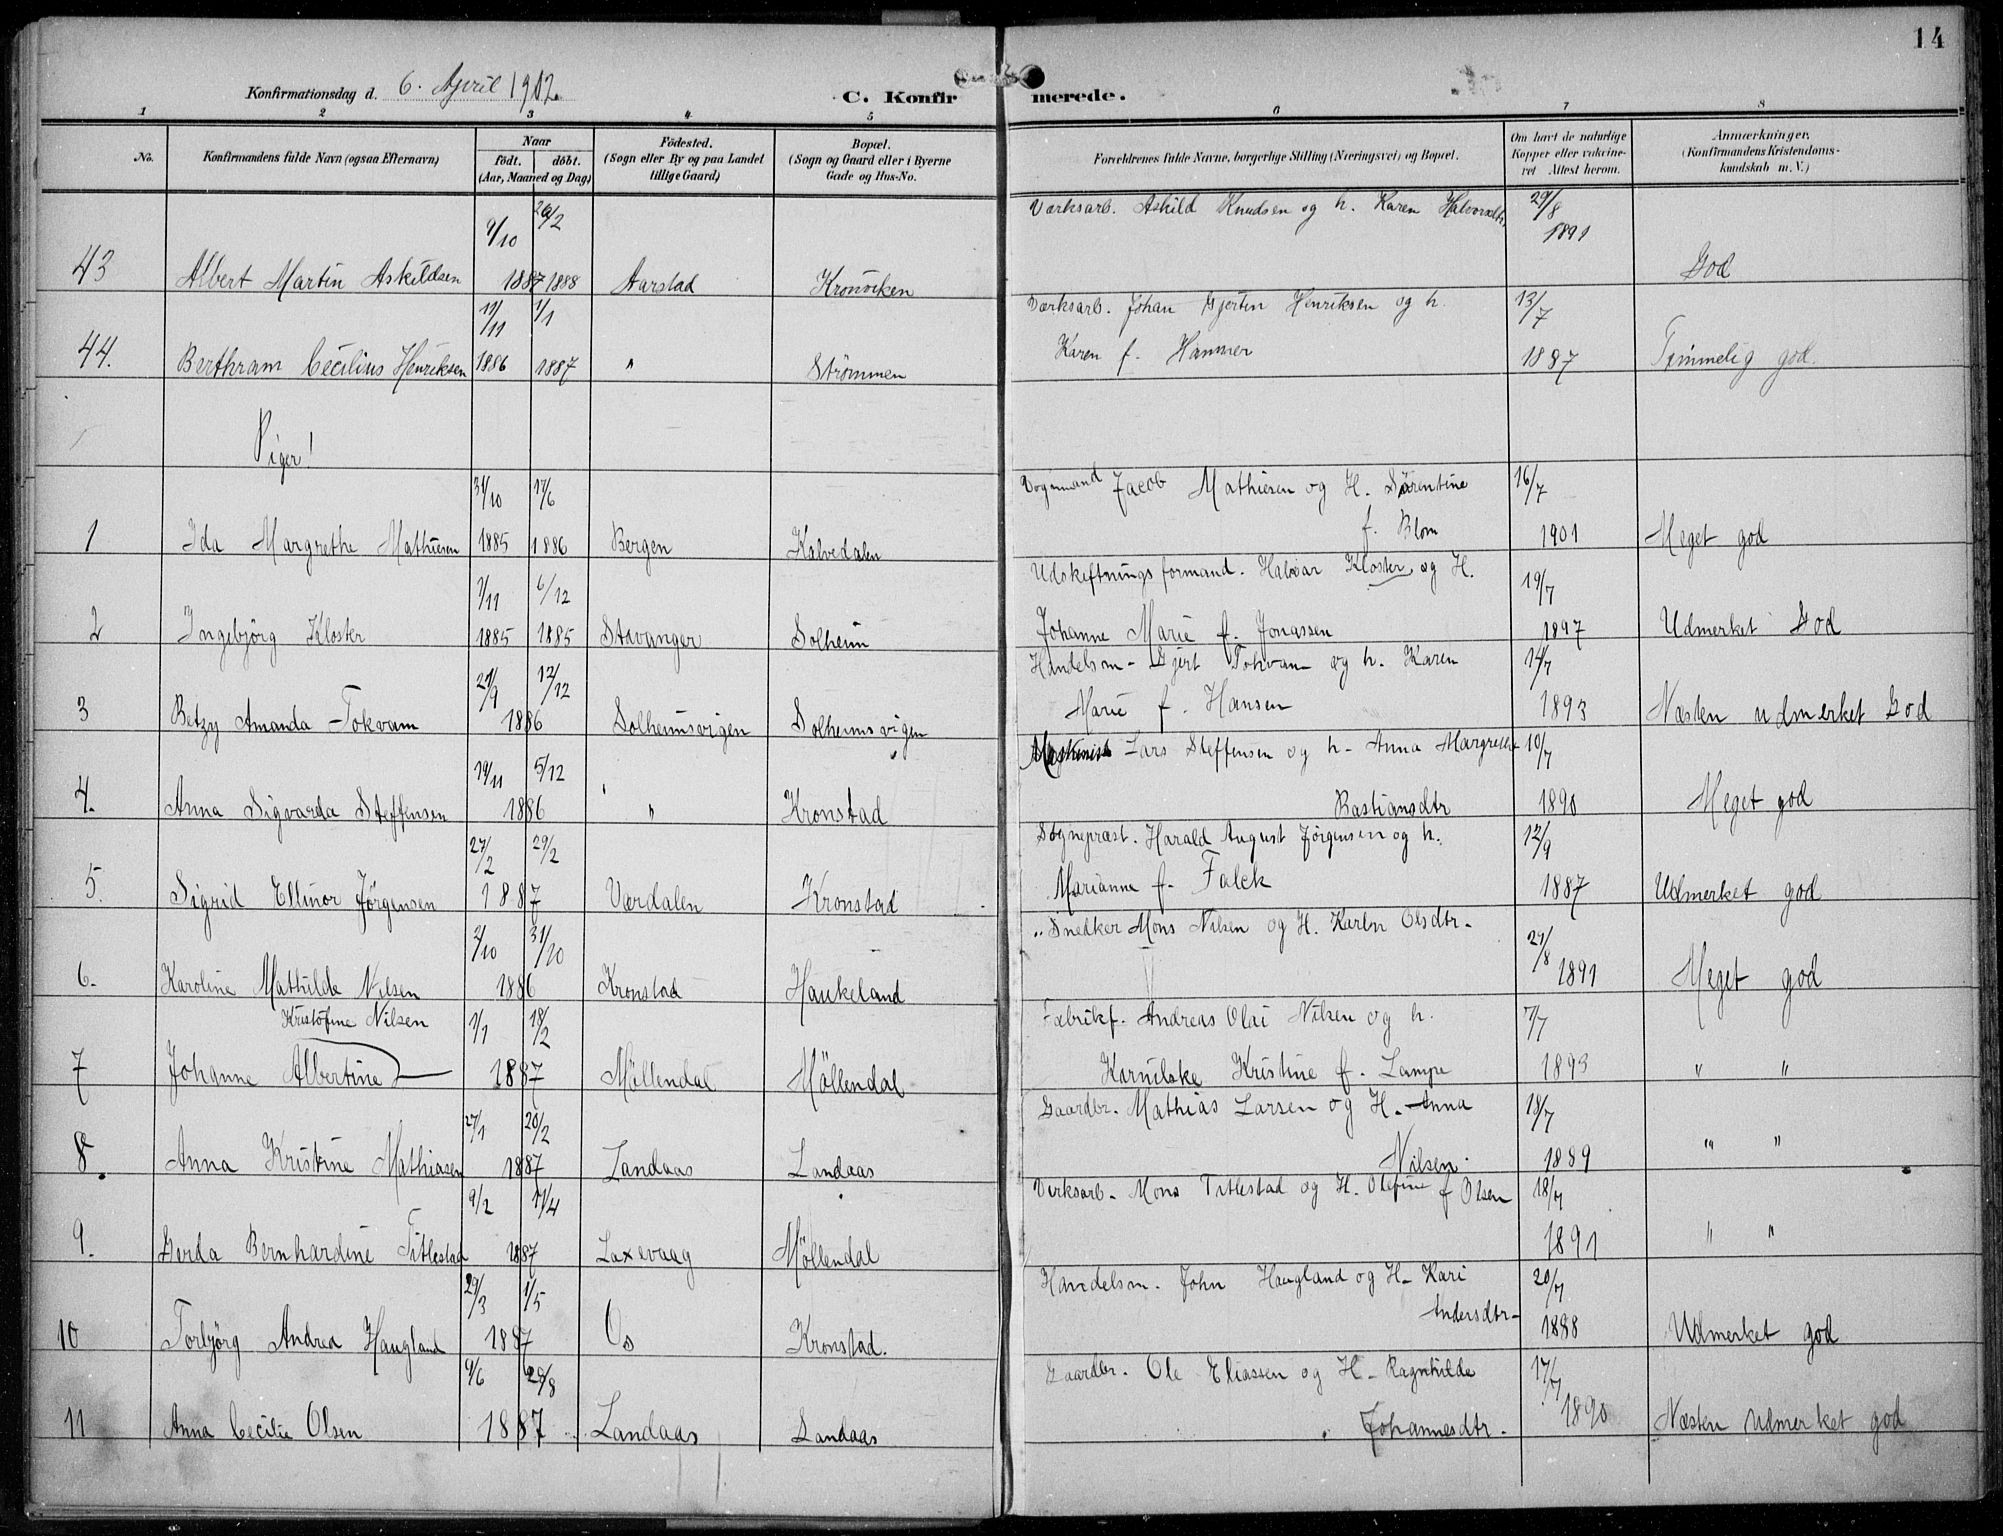 14
Konfirmationsdag d. 6. April 1902.
C. Konfirmerede.
1 2 3 4 5 6 7 8
No.
Konfirmandens fulde Navn (ogsaa Efternavn)
Naar
födt. döbt.
(Aar, Maaned og Dag)
Födested.
(Sogn eller By og paa Landet
tillige Gaard)
Bopæl.
(Sogn og Gaard eller i Byerne
Gade og Hus-No.
Forældrenes fulde Navne, borgerlige Stilling (Næringsvei) og Bopæl.
Om havt de naturlige
Kopper eller vaccine-
ret Attest herom.
Anmærkninger.
(Konfirmandens Kristendoms-
kundskab m. V.)
Værksarb. Askild Knudsen og h. Karen Halvorsdtr. 29/8
9/10 1891
43 Albert Martin Askildsen 1887 1888 Aarstad Kronviken God
11/11 1/1 Værksarb. Johan Gjertin Henriksen og h. 13/7
44. Berthram Cecilius Henriksen 1886 1887 " Strömmen Karen f. Hammer 1887 Temmelig god.
Piger!
31/10 17/6 Vognmand Jacob Mathiesen og H. Sörentine 16/7
f. Blom
1 Ida Margrethe Mathiesen 1885 1886 Bergen Kalvedalen 1901 Meget god
1/11 6/12 Udskiftningsformand. Halvar Kloster og H. 19/7
2 Ingebjörg Kloster 1885 1885 Stavanger Solheim Johanne Marie f. Jonassen 1897 Udmerket God
21/9 12/12 Handelsm- Gjert Tokvam og h. Karen 14/7
3 Betzy Amanda Tokvam 1886 Solheimsvigen Solheimsvigen Marie f. Hansen 1893 Næsten udmerket God
19/11 5/12 Maskinist Lars Steffensen og h- Anna Margrethe 10/7
4. Anna Sigvarda Steffensen 1886 " Kronstad Bastiansdtr 1890 Meget god
27/2 29/2 Sognepræst. Harald August Jörgensen og h. 12/9
5. Sigrid Ellinor Jörgensen 1887 Værdalen Kronstad Marianne f. Falck 1887 Udmerket god
2/10 31/10 Snedker Mons Nilsen og H. Karen Olsdtr. 27/8
6. Karoline Mathilde Nilsen 1886 Kronstad Haukeland 1891 Meget god
Kristofine Nilsen 1/1 18/2 Fabrikf. Andreas Olai Nilsen og h. 7/7
7 Johanne Albertine 1887 Möllendal Möllendal Kornilske Kristine f. Lampe 1893 " "
27/1 20/2 Gaardbr. Mathias Larsen og H. Anna 18/7
8. Anna Kristine Mathiasen 1887 Landaas Landaas Nilsen. 1889 " "
9/2 17/4 Verksarb. Mons Titlestad og H. Olefine f Olsen 18/7
9. Gerda Bernhardine Titlestad 1887 Laxevaag Möllendal 1891 " "
29/3 1/5 Handelsm. John Haugland og H- Kari 20/7
10 Torbjörg Andrea Haugland 1887 Os Kronstad. Andersdtr- 1888 Udmerket god
9/6 28/8 Gaardbr. Ole Eliassen og H- Ragnhilde 17/7
11 Anna Cecilie Olsen 1887 Landaas Landaas Johannesdtr. 1890 Næsten udmerket god